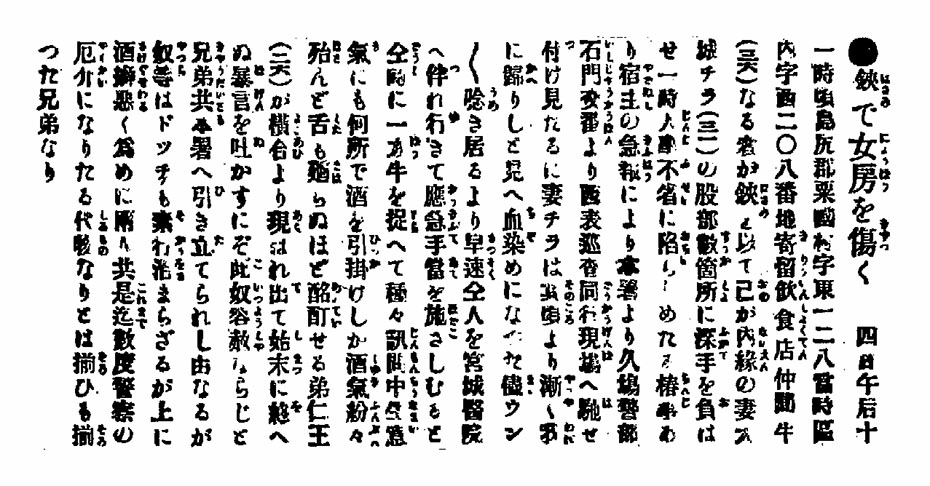 ●鋏で女房を傷く　四日午后十
一時頃島尻郡粟國村字東一二八當時區
內字西二〇八番地寄留飲食店仲間牛
(三六)なる者が鋏を以て己が內緣の妻大
城チラ(三一)の股部數箇所に深手を負は
せ一時人事不省に陷らしめたる椿事あ
り宿主の急報により本署より久場警部
石門交番より西表巡査同行現場へ馳せ
付け見たるに妻チラは其頃より漸く我
に歸りしと見へ血染めになつた儘ウン
〳〵唸き居るより早速仝人を宮城醫院
へ伴れ行きて應急手當を施さしむると
仝時に一方牛を捉へて種々訊問中生意
氣にも何所で酒を引掛けしか酒氣紛々
殆んど舌も廻らぬほど酩酊せる弟仁王
(二六)が橫合より現はれ出て始末に終へ
ぬ暴言を吐かすにぞ此奴容赦ならじと
兄弟共本署へ引き立てられし由なるが
奴等はドッチも素行治まらざるが上に
酒癖惡く爲めに兩人共是迄數度警察の
厄介になりたる代物なりとは揃ひも揃
つた兄弟なり